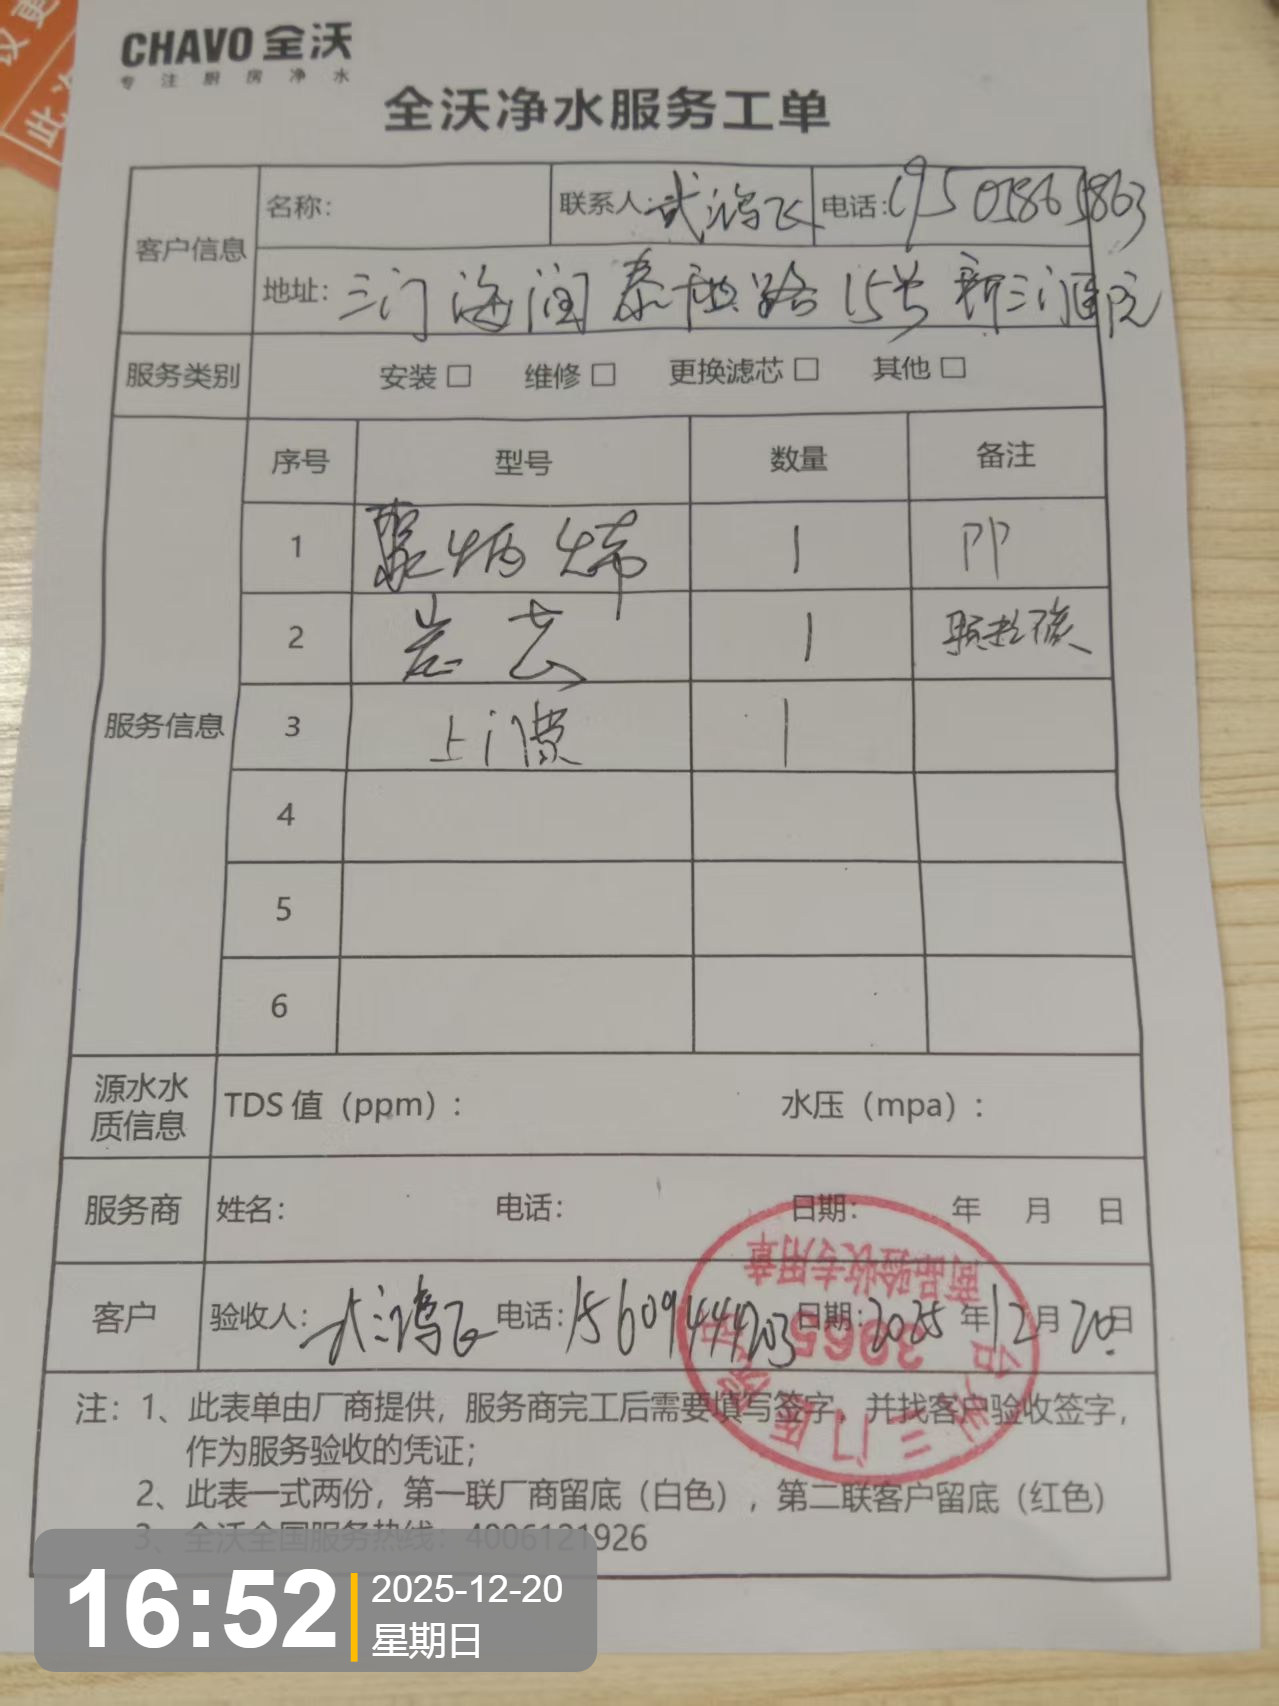 CHAVO 全沃
专注厨房净水
全沃净水服务工单
客户信息
名称:
联系人: 武鸿飞
电话:
地址: 三门海润泰和路15号新三门医院
服务类别
安装□ 维修□ 更换滤芯□ 其他□
服务信息
序号 型号 数量 备注
1 聚丙烯 1 PP
2 1 颗粒碳
3 上门费 1
4
5
6
源水水质信息
TDS 值（ppm）: 水压（mpa）:
服务商
姓名: 电话: 日期: 年 月 日
客户
验收人: 武鸿飞 电话:15609444203 日期:2025年12月20日
商品验收专用章
3065
注: 1、此表单由厂商提供，服务商完工后需要填写签字，并找客户验收签字，
作为服务验收的凭证；
2、此表一式两份，第一联厂商留底（白色），第二联客户留底（红色）
3、全沃全国服务热线：4006121926
16:52
2025-12-20
星期日